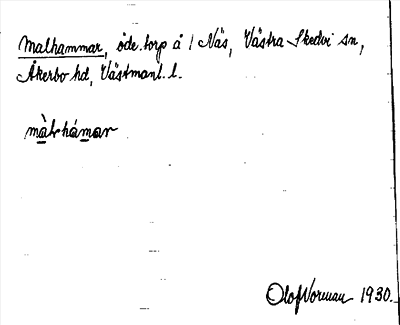 Malhammar, öde torp å 1 Näs, Västra Skedvi sn,
Åkerbo hd, Västmanl. l.
màlhámar
Olof Norman 1930.